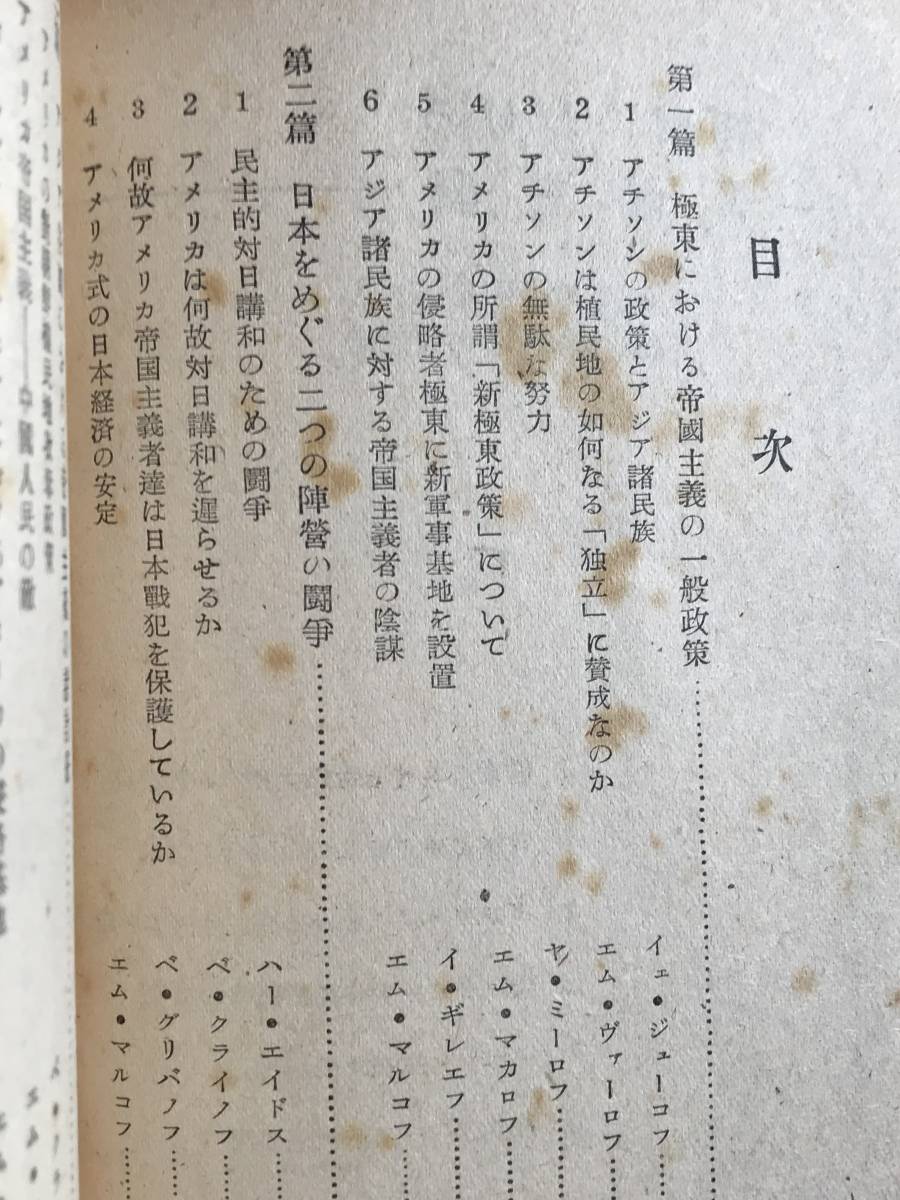 目次
第一篇 極東における帝國主義の一般政策……
1 アチソンの政策とアジア諸民族 イェ・ジューコフ……
2 アチソンは植民地の如何なる「独立」に賛成なのか エム・ヴァーロフ……
3 アチソンの無駄な努力 ヤ・ミーロフ……
4 アメリカの所謂「新極東政策」について エム・マカロフ……
5 アメリカの侵略者極東に新軍事基地を設置 イ・ギレエフ……
6 アジア諸民族に対する帝国主義者の陰謀 エム・マルコフ……
第二篇 日本をめぐる二つの陣營の闘爭……
1 民主的対日講和のための闘爭 ハー・エイドス……
2 アメリカは何故対日講和を遅らせるか ベ・クライノフ……
3 何故アメリカ帝国主義者達は日本戰犯を保護しているか ベ・グリバノフ……
4 アメリカ式の日本経済の安定 エム・マルコフ……